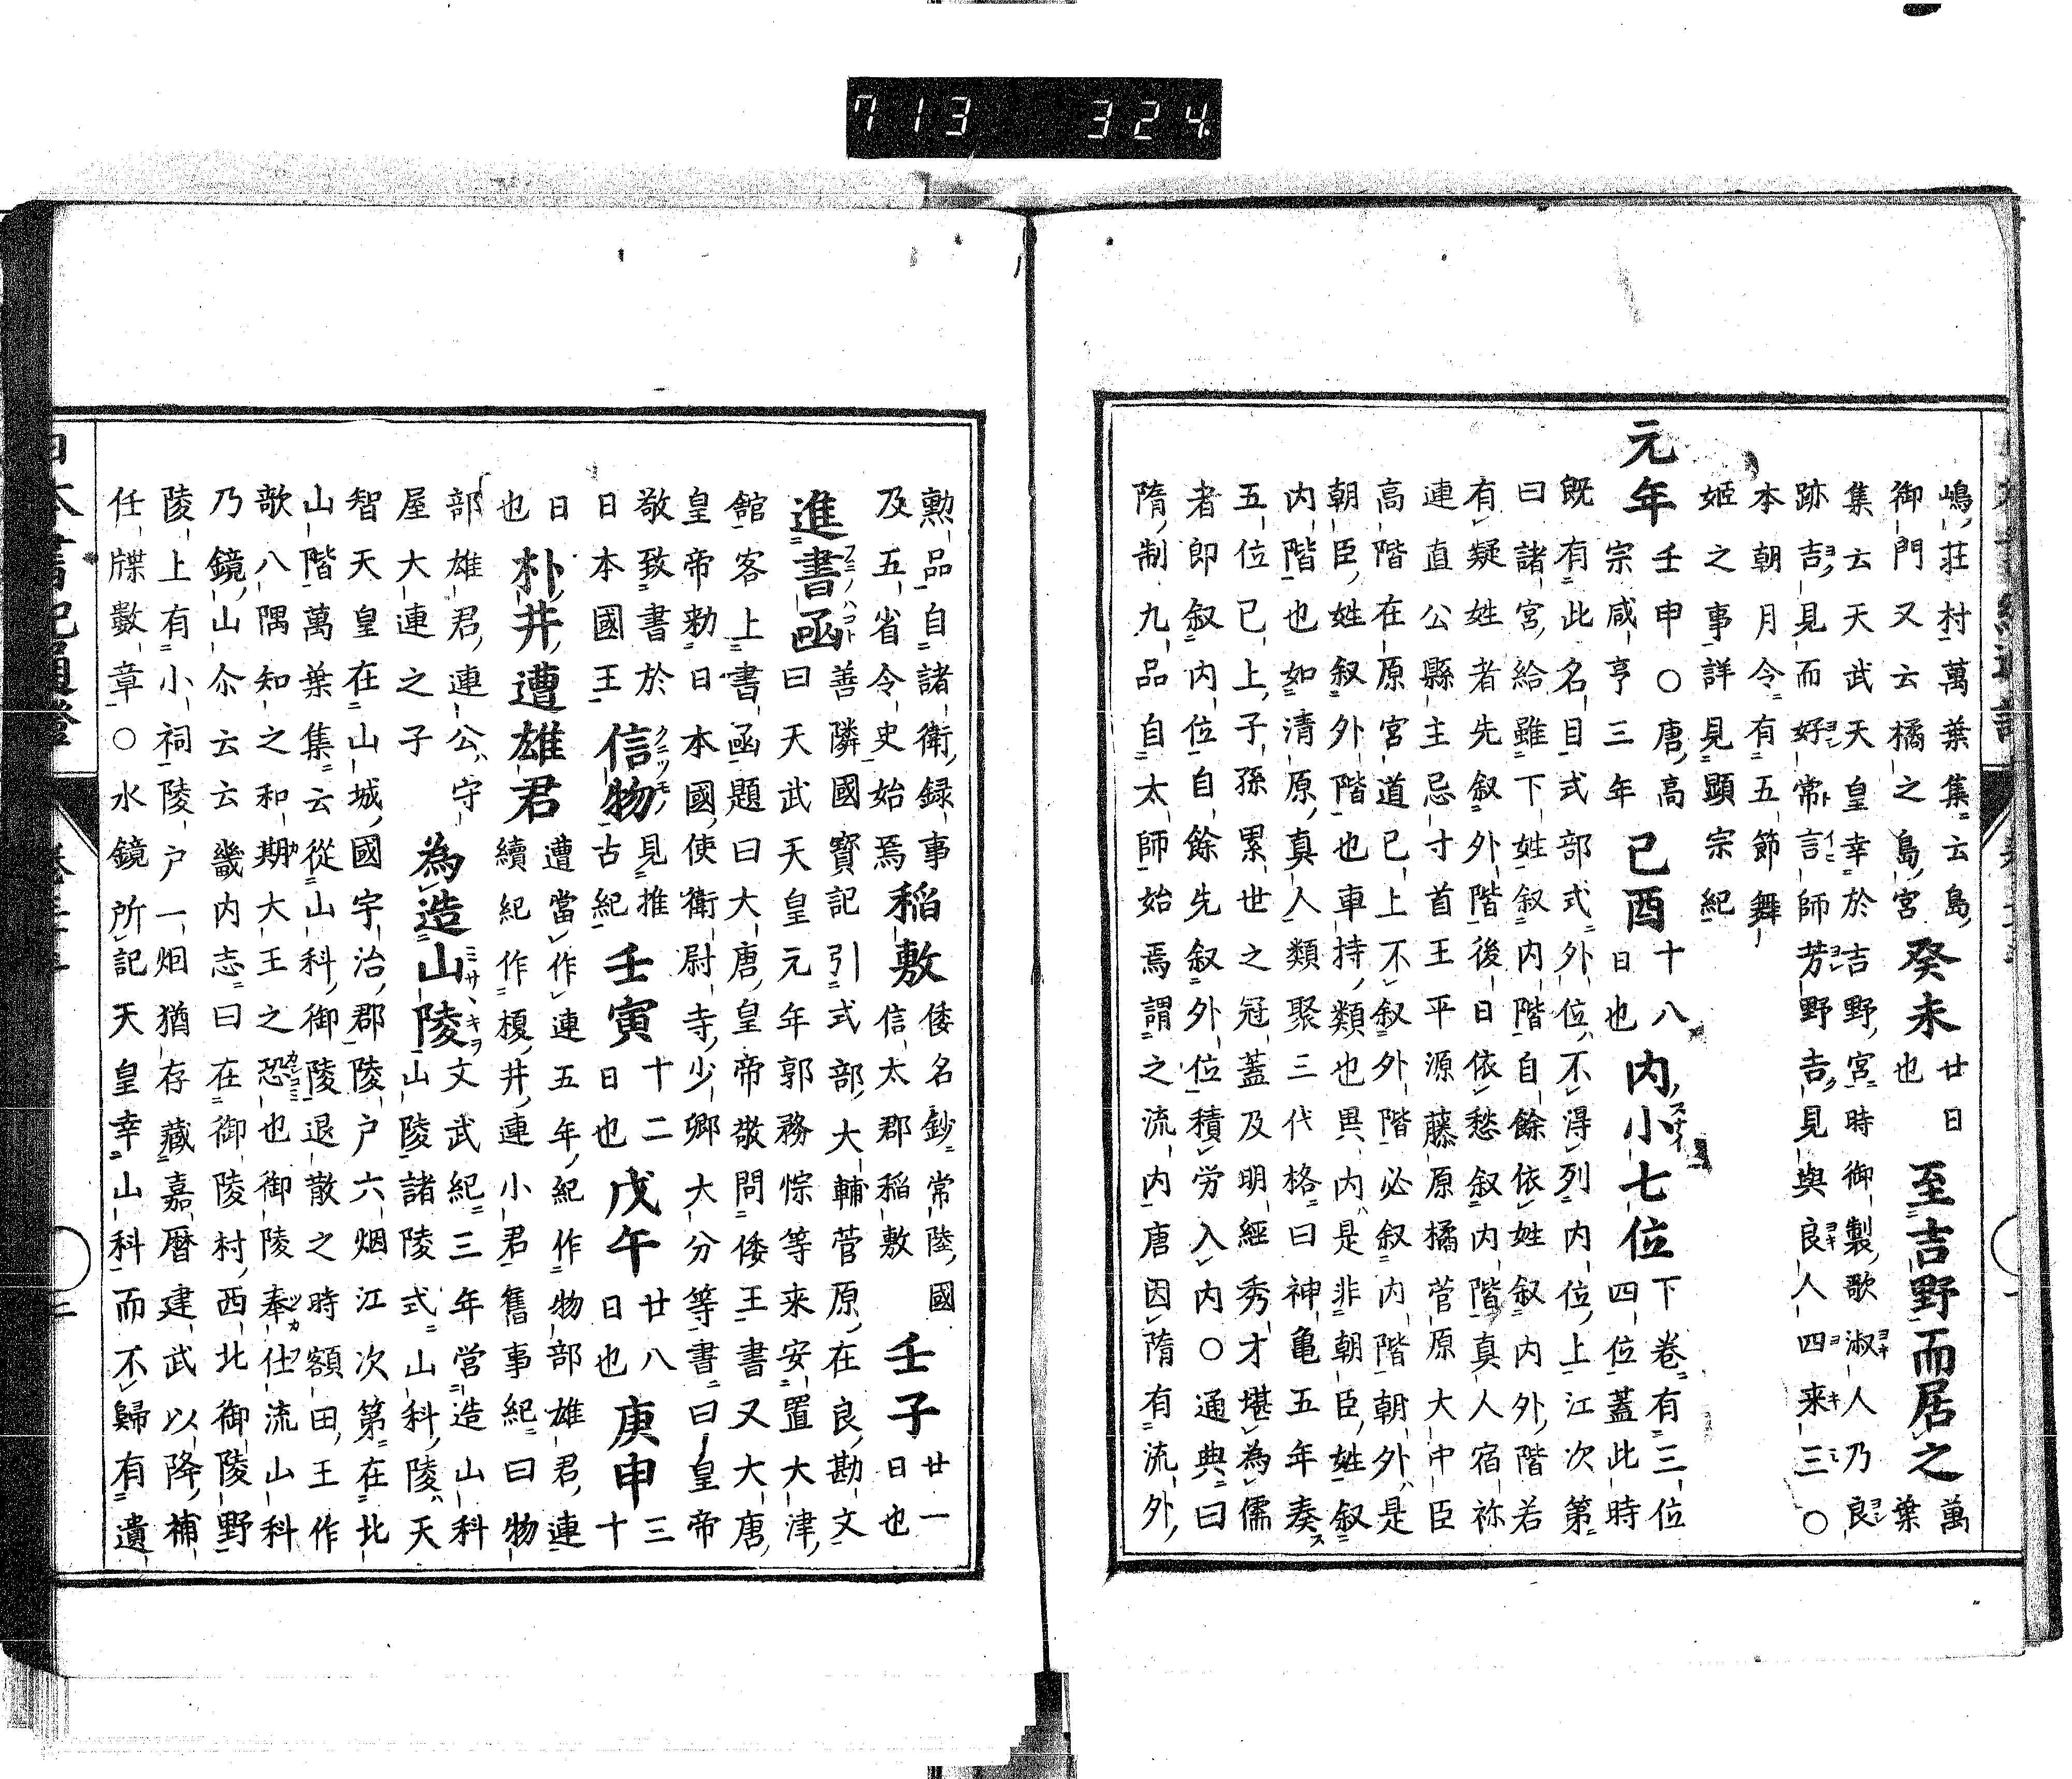 713 324
嶋荘村萬葉集云島
御門又云橘之島宮癸未廿日也至吉野而居之萬葉
集云天武天皇幸於吉野宮時御製歌淑人乃良
跡吉見而好常言師芳野吉見與良人四来三○
本朝月令有五節舞
姫之事詳見顕宗紀
元年壬申○唐高宗咸亨三年己酉十八日也内小七位下卷有三位四位蓋此時
既有此名目式部式外位不得列内位上江次第
曰諸宮給雖下姓叙内階自餘依姓叙内外階若
有疑姓者先叙外階後日依愁叙内階真人宿祢
連直公縣主忌寸首王平源藤原橘菅原大中臣
高階在原宮道已上不叙外階必叙内階朝外是
朝臣姓叙外階也車持類也異内是非朝臣姓叙
内階也如清原真人類聚三代格曰神亀五年奏
五位已上子孫累世之冠蓋及明經秀才堪為儒
者即叙内位自餘先叙外位積労入内○通典曰
隋制九品自太師始焉謂之流内唐因隋有流外
勲品自諸衛録事
及五省令史始焉稲敷倭名鈔常陸國信太郡稲敷壬子廿一日也
進書函善隣國寶記引式部大輔菅原在良勘文曰天武天皇元年郭務悰等来安置大津
館客上書函題曰大唐皇帝敬問倭王書又大唐
皇帝勅日本國使衛尉寺少卿大分等書曰皇帝
敬致書於日本國王信物見推古紀壬寅十二日也戊午廿八日也庚申三十
日也朴井遭雄君遭當作連五年紀作物部雄君連續紀作榎井連小君舊事紀曰物
部雄君連公守
屋大連之子為造山陵文武紀三年営造山科山陵諸陵式山科陵天
智天皇在山城國宇治郡陵戸六烟江次第在北
山階萬葉集云從山科御陵退散之時額田王作
歌八隅知之和期大王之恐也御陵奉仕流山科
乃鏡山尒云云畿内志曰在御陵村西北御陵野
陵上有小祠陵戸一烟猶存藏嘉暦建武以降補
任牒數章○水鏡所記天皇幸山科而不歸有遺